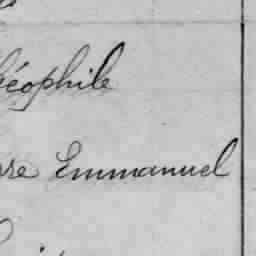 héophile
rre Emmanuel